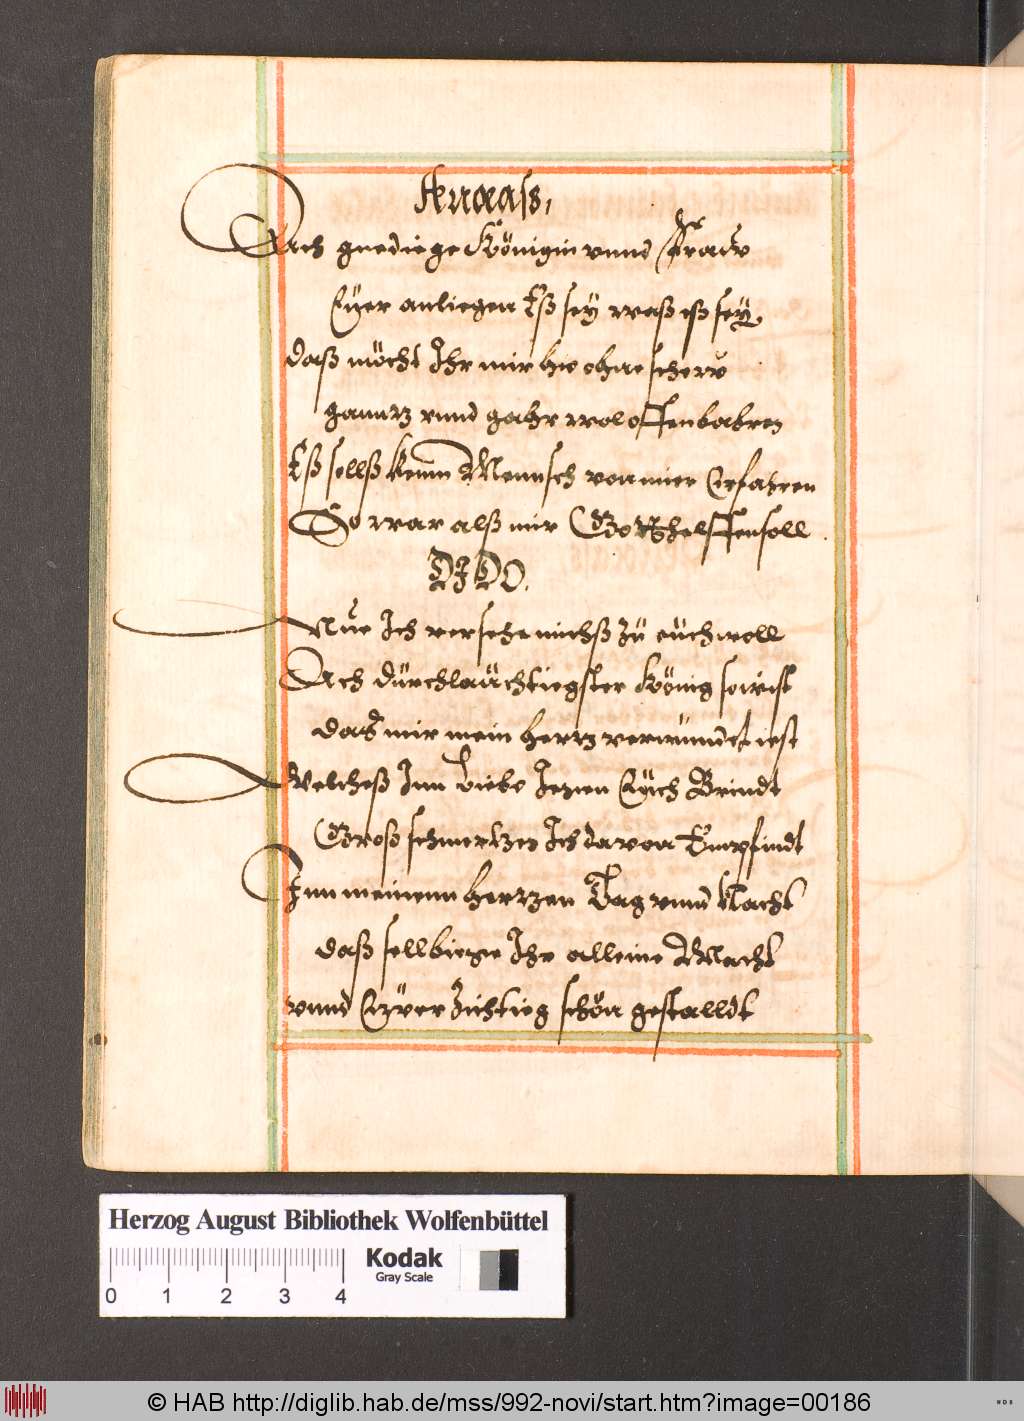 Aeneas,
Ach gnedige Königin vnnd Fraw
Eüer anliegen Eß sey waß eß sey,
daß möcht Ihr mir hie ohne schew
ganntz vnnd gahr wol offenbahren
Eß sollß kenn Mennsch von mier Erfahren
So war alß mir Gott helffen soll
DIDO.
Nue Ich versehe michß zü eüch woll
Ach dürchlaüchtiegster König so wist
daß mir mein hertz verwundet iest
Welcheß Inn Liebe Jegen Eüch Brindt
Groß schmertzen Ich davon Empfindt
Inn meinenn hertzen Tag vnnd Nacht
daß sellbiege Ihr alleine Macht
vnnd Eüer Züchtieg schön gestalldt
Herzog August Bibliothek Wolfenbüttel
Kodak
Gray Scale
0 1 2 3 4
© HAB http://diglib.hab.de/mss/992-novi/start.htm?image=00186